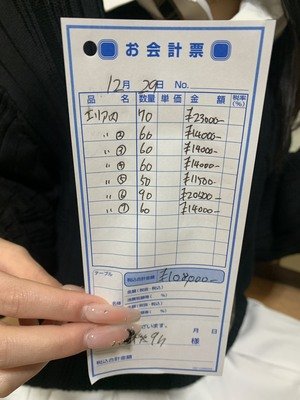 お会計票
12月 29日 No.
品 名 数量 単価 金 額 税率(%)
エリア① 70 ¥23000-
〃② 60 ¥14000-
〃③ 60 ¥14000-
〃④ 60 ¥14000-
〃⑤ 50 ¥11500-
〃⑥ 90 ¥20500-
〃⑦ 60 ¥14000-
テーブル 税込合計金額 ¥108000-
名様
ざいます。 月 日
様
税込合計金額